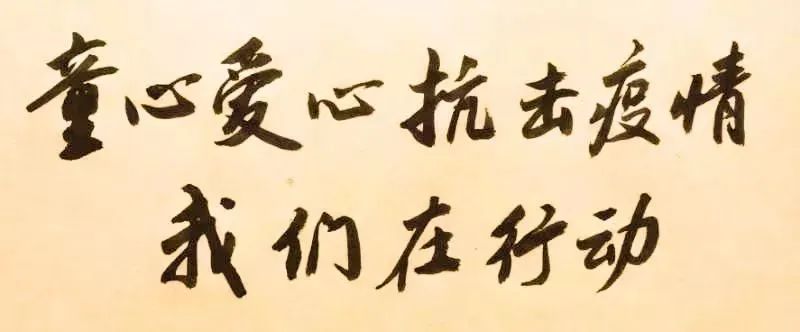 童心爱心抗击疫情
我们在行动